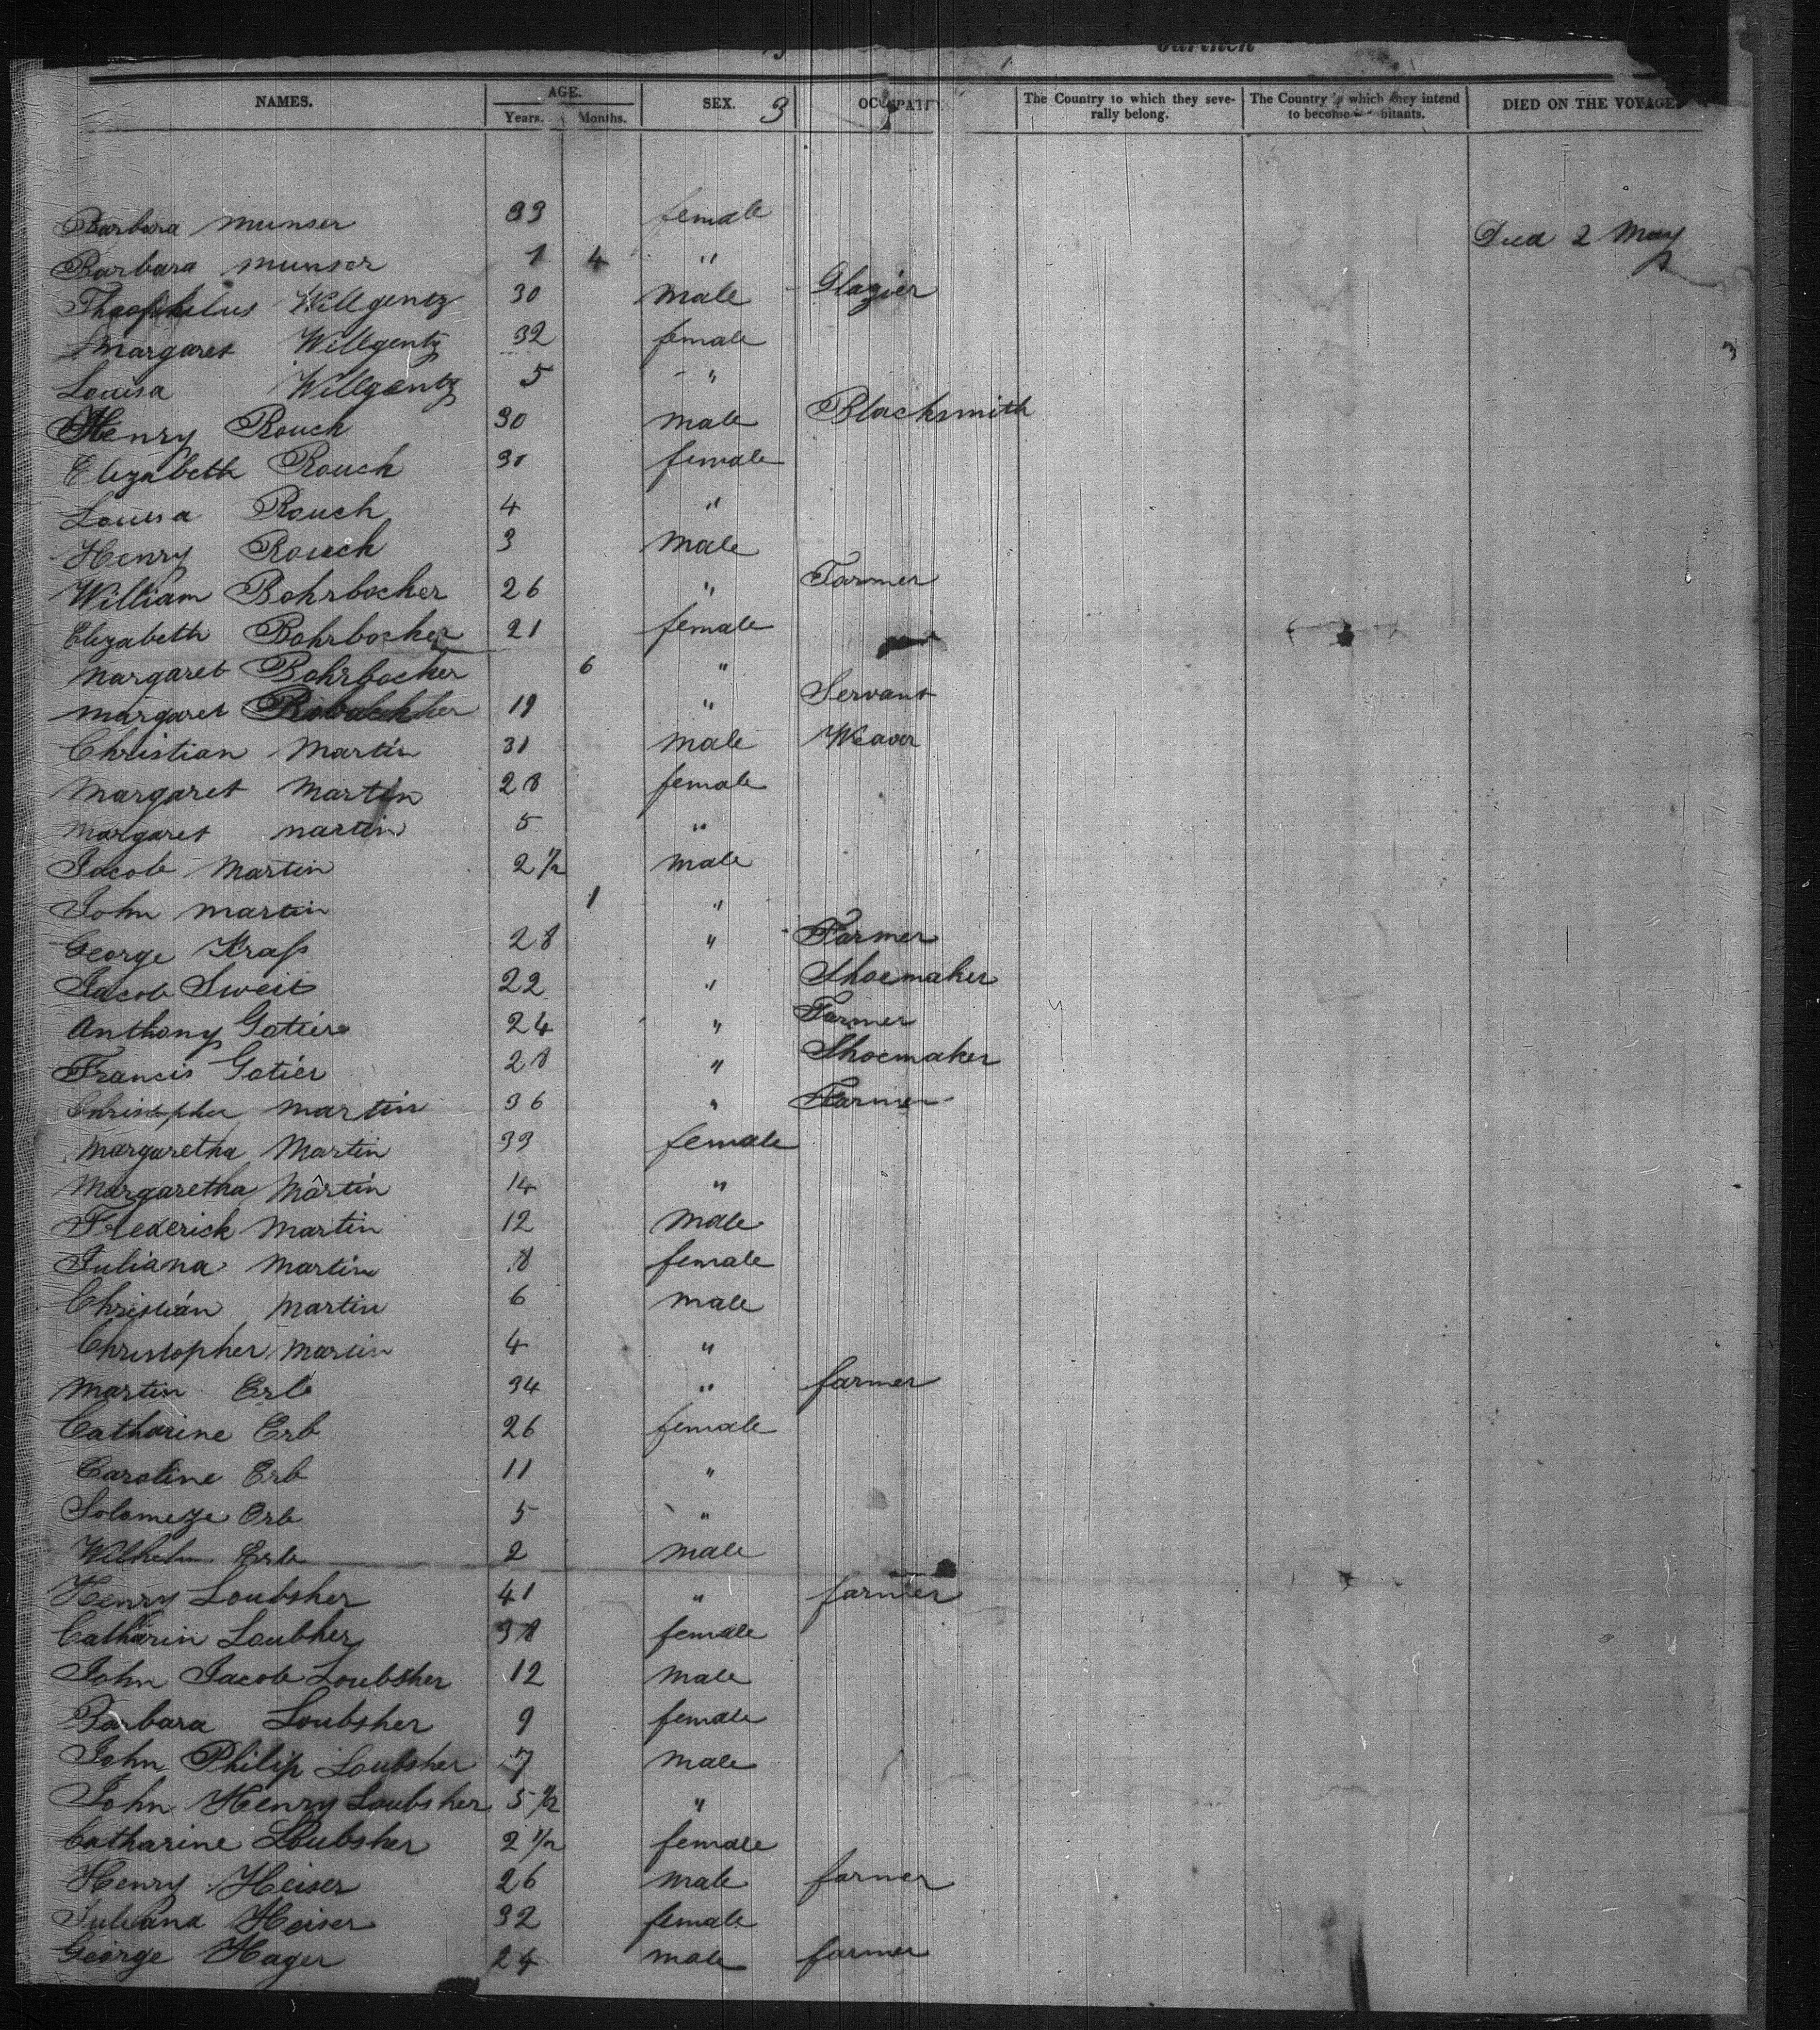 NAMES. AGE. SEX. 3 The Country to which they seve- The Country which they intend DIED ON THE VOYAGE
Years. Months. rally belong. to become bitants.
Barbara Munser 33 female
Barbara Munser 1 4 " Died 2 May
Theophilus Willgentz 30 male Glazier
Margaret Willgentz 32 female
Louisa Willgentz 5 "
Henry Rouch 30 male Blacksmith
Elizabeth Rouch 31 female
Louisa Rouch 4 "
Henry Rouch 3 male
William Bohrbocher 26 " Farmer
Elizabeth Bohrbocher 21 female
Margaret Bohrbocher 6 "
Margaret 19 " Servant
Christian Martin 31 male Weaver
Margaret Martin 28 female
Margaret Martin 5 "
Jacob Martin 2 1/2 male
John Martin 1 "
George Krass 28 " Farmer
Jacob Sweit 22 " Shoemaker
Anthony Gotier 24 " Farmer
Francis Gotier 28 " Shoemaker
Christopher Martin 36 " Farmer
Margaretha Martin 33 female
Margaretha Martin 14 "
Frederick Martin 12 male
Juliana Martin 8 female
Christian Martin 6 male
Christopher Martin 4 "
Martin Erb 34 " farmer
Catharine Erb 26 female
Caroline Erb 11 "
Solomeze Erb 5 "
Wilhelm Erb 2 male
Henry Loubsher 41 " farmer
Catharin Loubher 38 female
John Jacob Loubsher 12 male
Barbara Loubsher 9 female
John Philip Loubsher 7 male
John Henry Loubsher 5 1/2 "
Catharine Loubsher 2 1/2 female
Henry Heiser 26 male farmer
Juliana Heiser 32 female
George Hager 24 male farmer